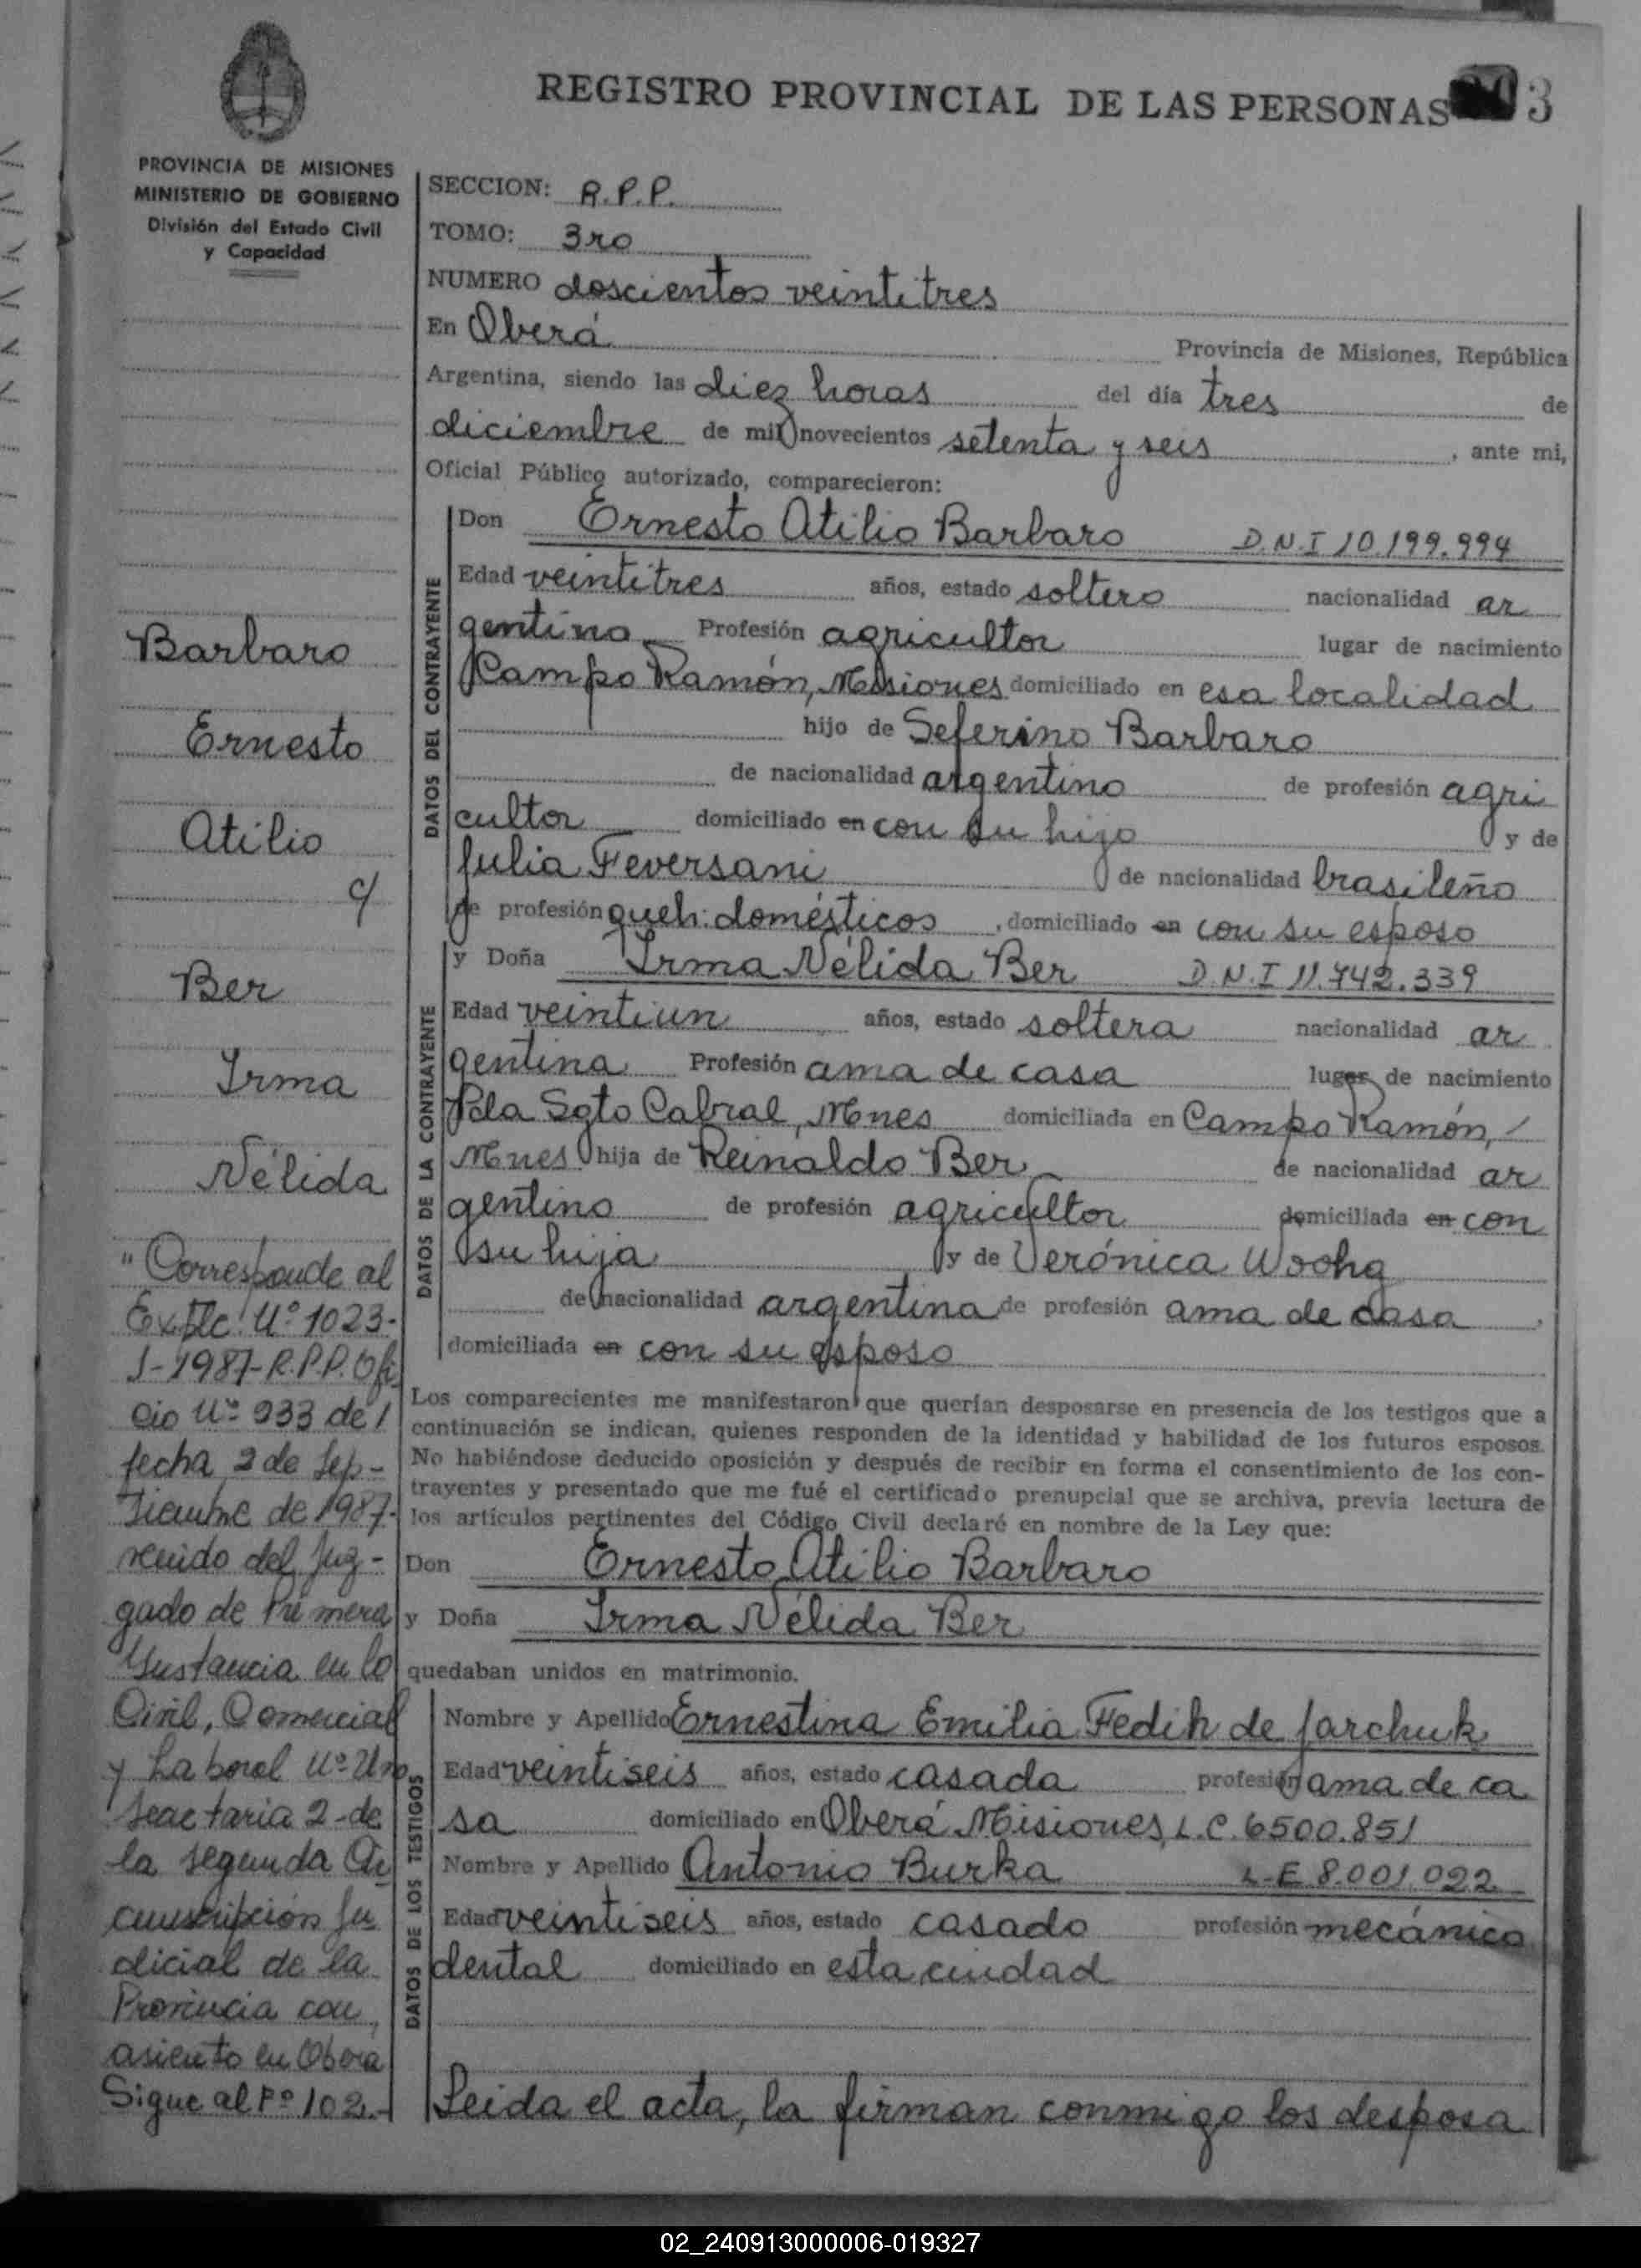 REGISTRO PROVINCIAL DE LAS PERSONAS 3
PROVINCIA DE MISIONES
MINISTERIO DE GOBIERNO
División del Estado Civil
y Capacidad
SECCION: R.P.P.
TOMO: 3ro
NUMERO doscientos veintitres
En Oberá Provincia de Misiones, República
Argentina, siendo las diez horas del día tres de
diciembre de mil novecientos setenta y seis, ante mi,
Oficial Público autorizado, comparecieron:
DATOS DEL CONTRAYENTE
Don Ernesto Atilio Barbaro D.N.I 10.199.994
Edad veintitres años, estado soltero nacionalidad ar
gentino Profesión agricultor lugar de nacimiento
Campo Ramón, Misiones domiciliado en esa localidad
hijo de Seferino Barbaro
de nacionalidad argentino de profesión agri
cultor domiciliado en con su hijo y de
Julia Feversani de nacionalidad brasileño
de profesión queh: domésticos, domiciliado en con su esposo
DATOS DE LA CONTRAYENTE
y Doña Irma Nélida Ber D.N.I 11.742.339
Edad veintiun años, estado soltera nacionalidad ar
gentina Profesión ama de casa lugar de nacimiento
Pcla Sgto Cabral, Mnes domiciliada en Campo Ramón, /
Mnes hija de Reinaldo Ber de nacionalidad ar
gentino de profesión agricultor domiciliada en con
su hija y de Verónica Woohg
de nacionalidad argentina de profesión ama de casa
domiciliada en con su esposo
Los comparecientes me manifestaron que querían desposarse en presencia de los testigos que a
continuación se indican, quienes responden de la identidad y habilidad de los futuros esposos.
No habiéndose deducido oposición y después de recibir en forma el consentimiento de los con-
trayentes y presentado que me fué el certificado prenupcial que se archiva, previa lectura de
los artículos pertinentes del Código Civil declaré en nombre de la Ley que:
Don Ernesto Atilio Barbaro
y Doña Irma Nélida Ber
quedaban unidos en matrimonio.
DATOS DE LOS TESTIGOS
Nombre y Apellido Ernestina Emilia Fedih de Jarchuk
Edad veintiseis años, estado casada profesión ama de ca
sa domiciliado en Oberá Misiones, L.C. 6500.851
Nombre y Apellido Antonio Burka L.E 8.001.022
Edad veintiseis años, estado casado profesión mecánico
dental domiciliado en esta ciudad
Leida el acta, la firman conmigo los desposa
Barbaro
Ernesto
Atilio
c/
Ber
Irma
Nélida
"Corresponde al
Expte. Nº 1023-
J-1987-R.P.P. Ofi
cio Nº 933 de /
fecha 2 de Sep-
tiembre de 1987-
venido del Juz-
gado de Primera
Instancia en lo
Civil, Comercial
y Laboral Nº Uno
Secretaria 2-de
la segunda Cir
cunscripción Ju
dicial de la
Provincia con
asiento en Obera
Sigue al Fº 102.-
02_240913000006-019327